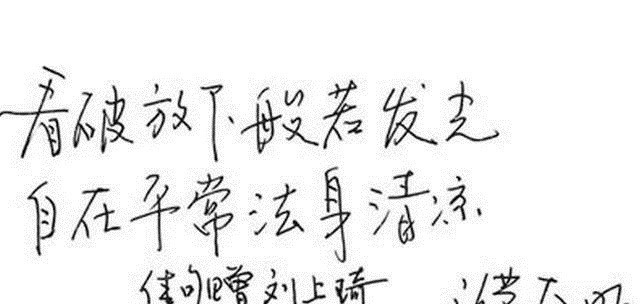 看破放下般若发光
自在平常法身清凉
佳句赠刘上琦